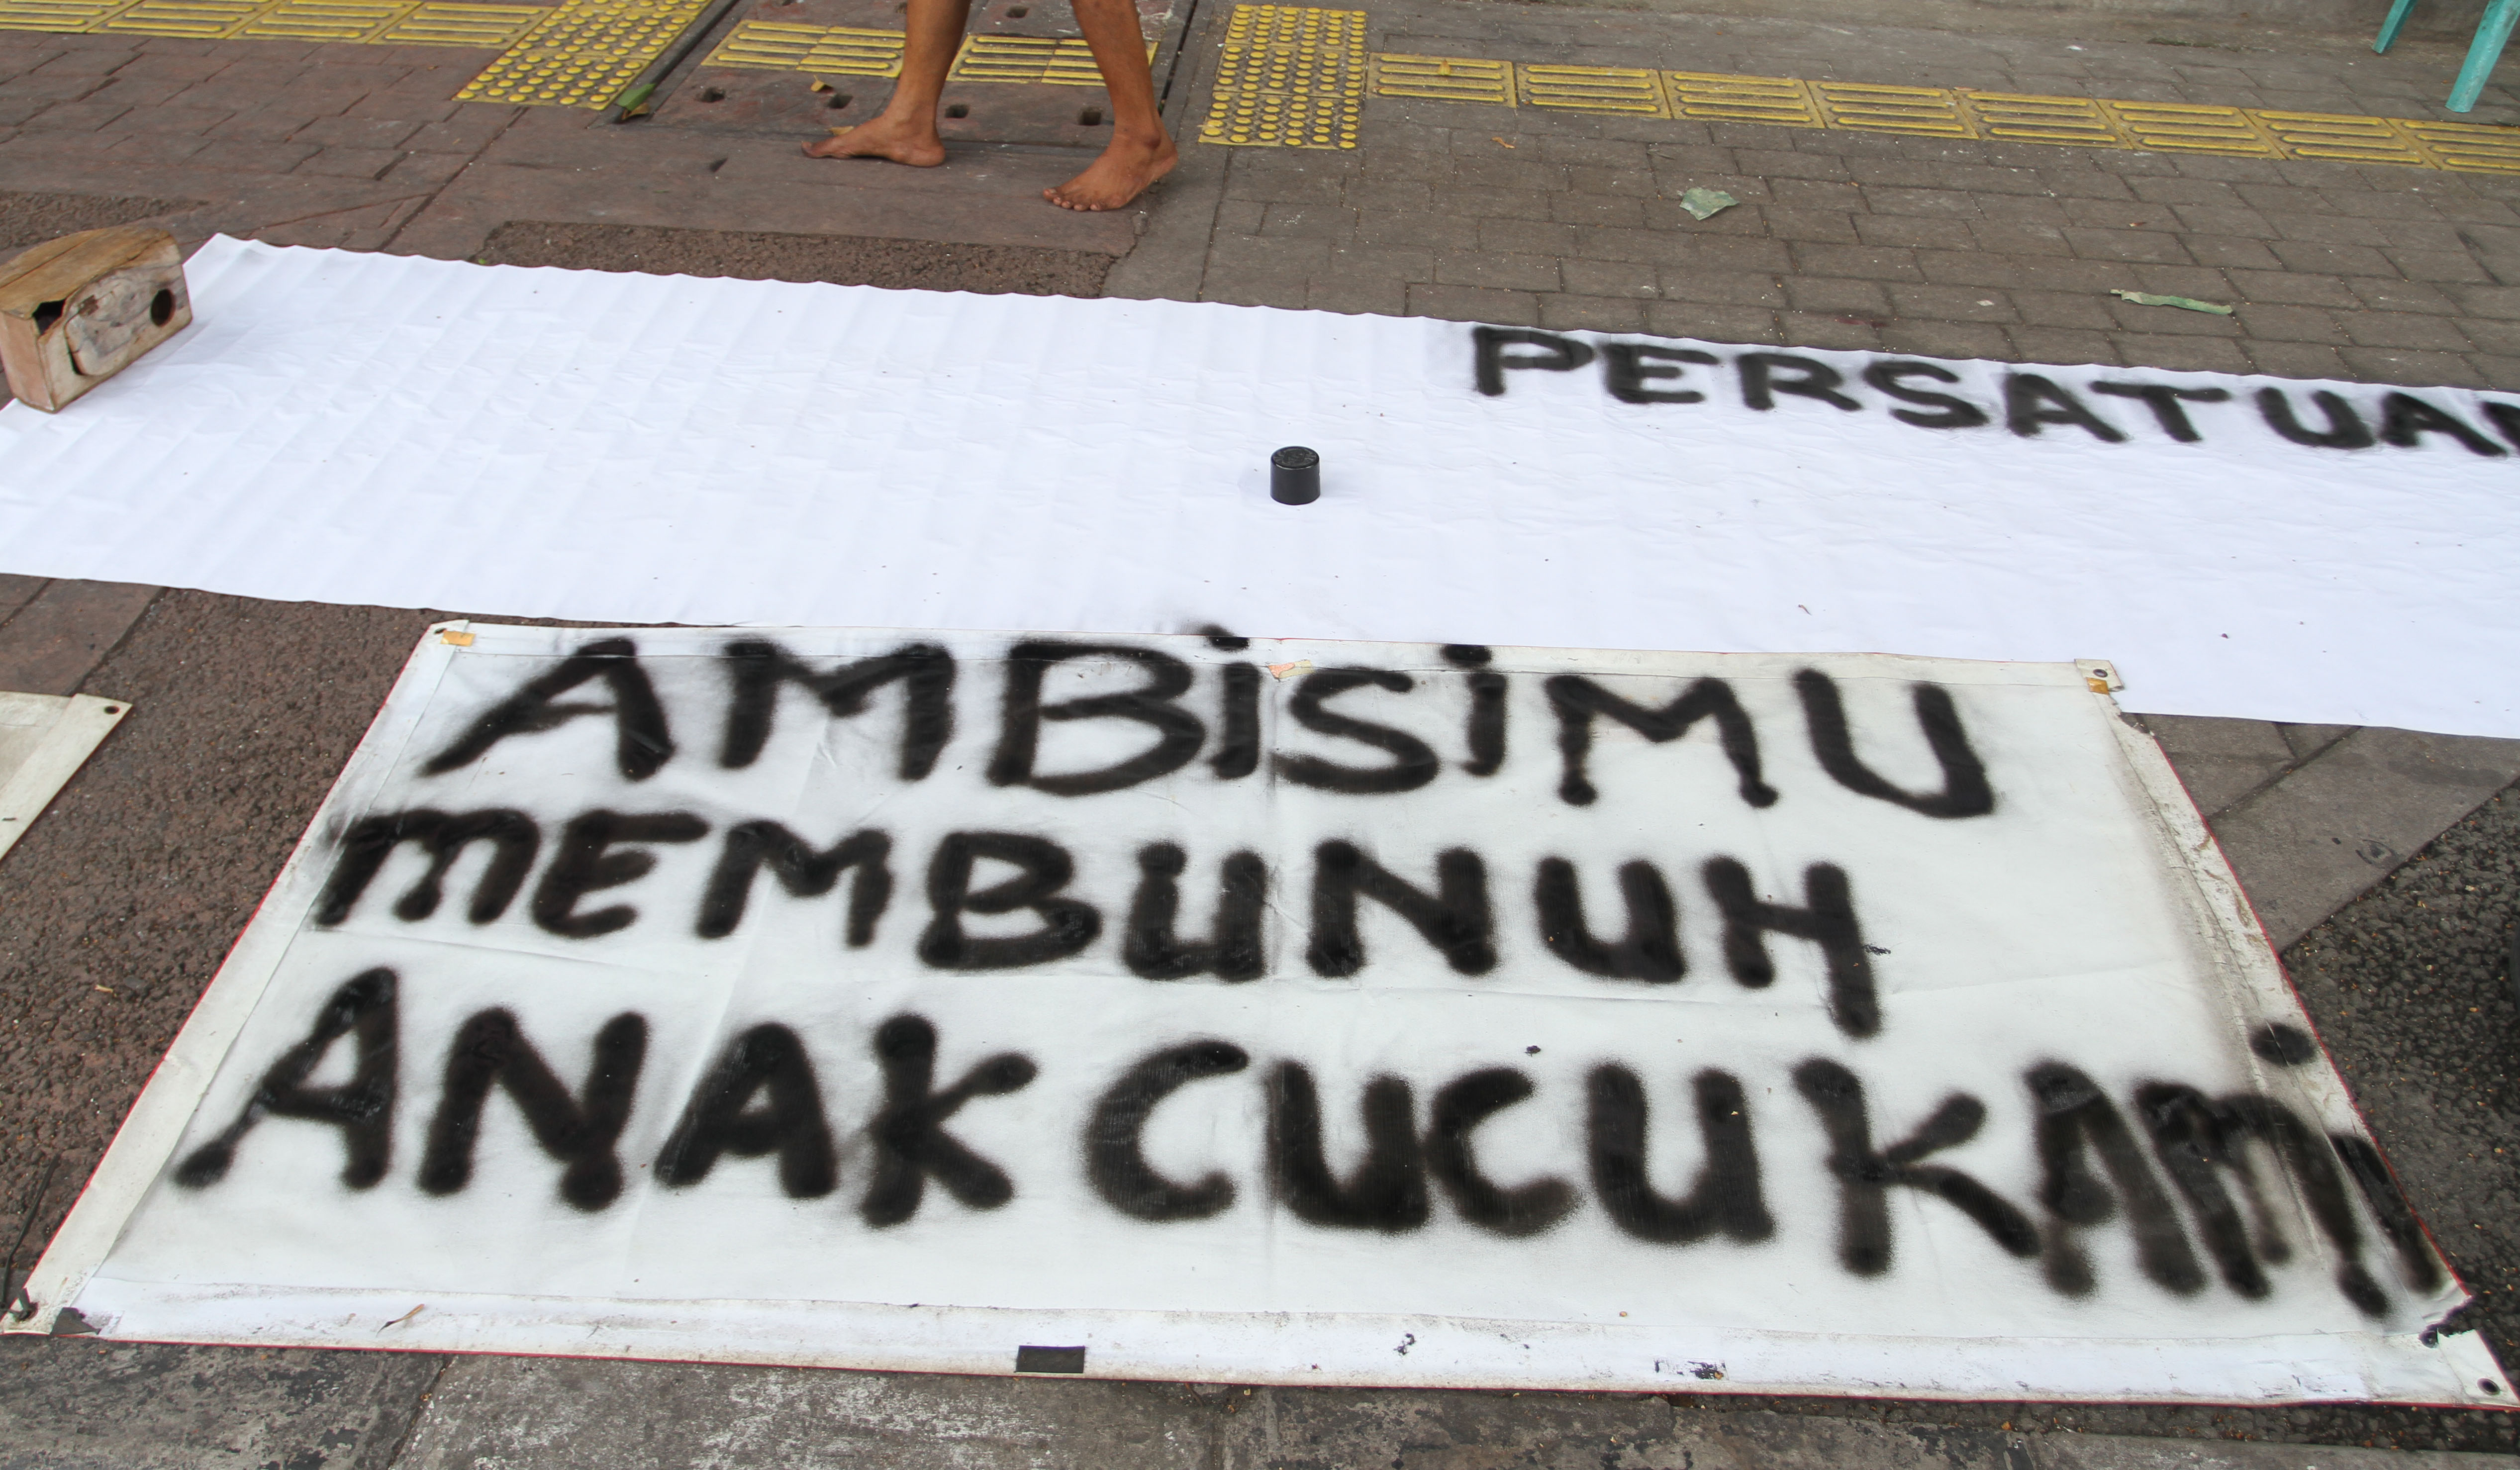 PERSATUAN
AMBiSiMU
MEMBUNUH
ANAK CUCU KAMi